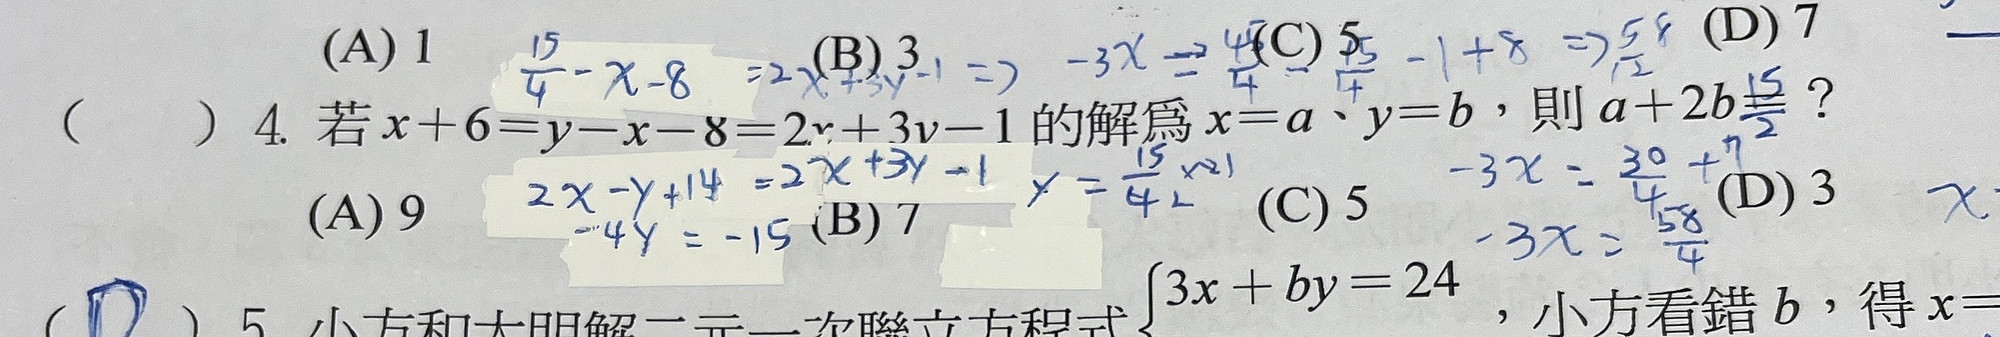 (A) 1 (B) 3 (C) 5 (D) 7
15/4 - x - 8 = 2x + 3y - 1 => -3x = 45/4 - 15/4 - 1 + 8 => 58/12
( ) 4. 若 x+6=y-x-8=2x+3y-1 的解為 x=a、y=b，則 a+2b= ?
15/2
2x - y + 14 = 2x + 3y - 1
-4y = -15
y = 15/4
-3x = 30/4 + 7
-3x = 58/4
x
(A) 9 (B) 7 (C) 5 (D) 3
(D) 5. 小方和大明解二元一次聯立方程式 { 3x+by=24 ，小方看錯 b，得 x=